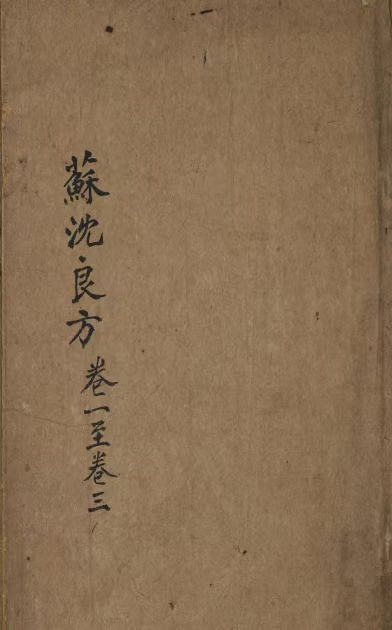 蘇沈良方 卷一至卷三